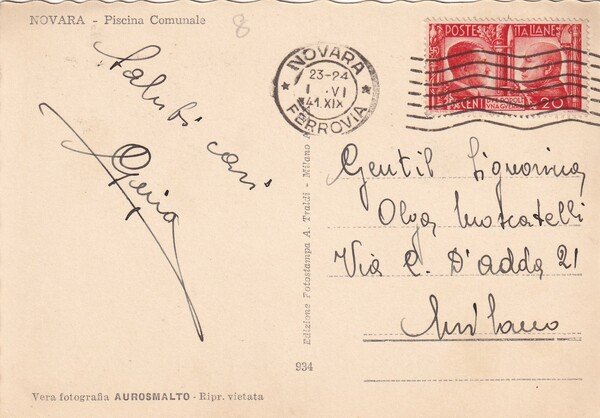 NOVARA - Piscina Comunale
8
Saluti cari
NOVARA
23-24
1 .VI
41 XIX
FERROVIA
POSTE ITALIANE
CENT 20
Gentil Signorina
Olga Moscatelli
Via C. D'adda 21
Milano
Edizione Fotostampa A. Traldi - Milano
934
Vera fotografia AUROSMALTO - Ripr. vietata